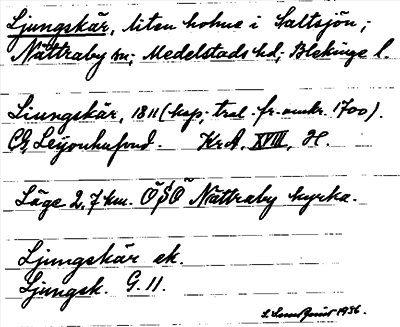 Ljungskär, liten holme i Saltsjön,;
Nättraby sn; Medelstads hd; Blekinge l.
Liungskär, 1811 (kop; trol. fr. omkr. 1700).
CG Leijonhufvud. Kr.A. XVIII, H.
Läge 2,7 km. ÖSÖ Nättraby kyrka.
Ljungskär ek.
Ljungsk. G. 11.
1936.